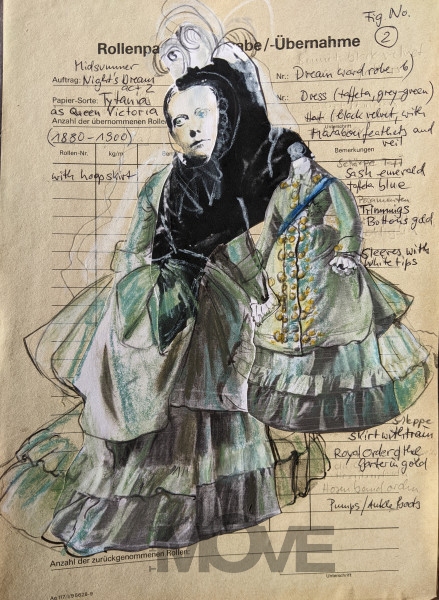 Fig No.
2
Rollenpa abe/-Übernahme
Midsummer
Auftrag: Night's Dream
act 2
Nr.: Dream wardrobe 6)
Papier-Sorte: Tytania
as Queen Victoria
Nr.: Dress (taffeta, grey-green)
Anzahl der übernommenen Rollen
Hat (black velvet, with
Marabou feathers and
veil
(1880-1900)
Bemerkungen
Rollen-Nr. kg/m
with hoopskirt
Sash emerald
tafeta blue
Trimmings
Buttons gold
Sleeves with
white tips
skirt with train
Royal Order of the
Garter in gold
Pumps/Ankle boots
MOVE
Anzahl der zurückgenommenen Rollen:
Unterschrift